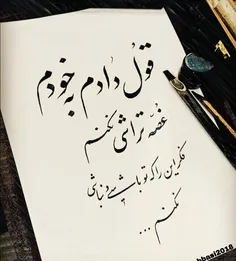 قول دادم به خودم
غصه تراشی نکنم
فکر این را که تو باشی و نباشی
نکنم ...
bbasi2018